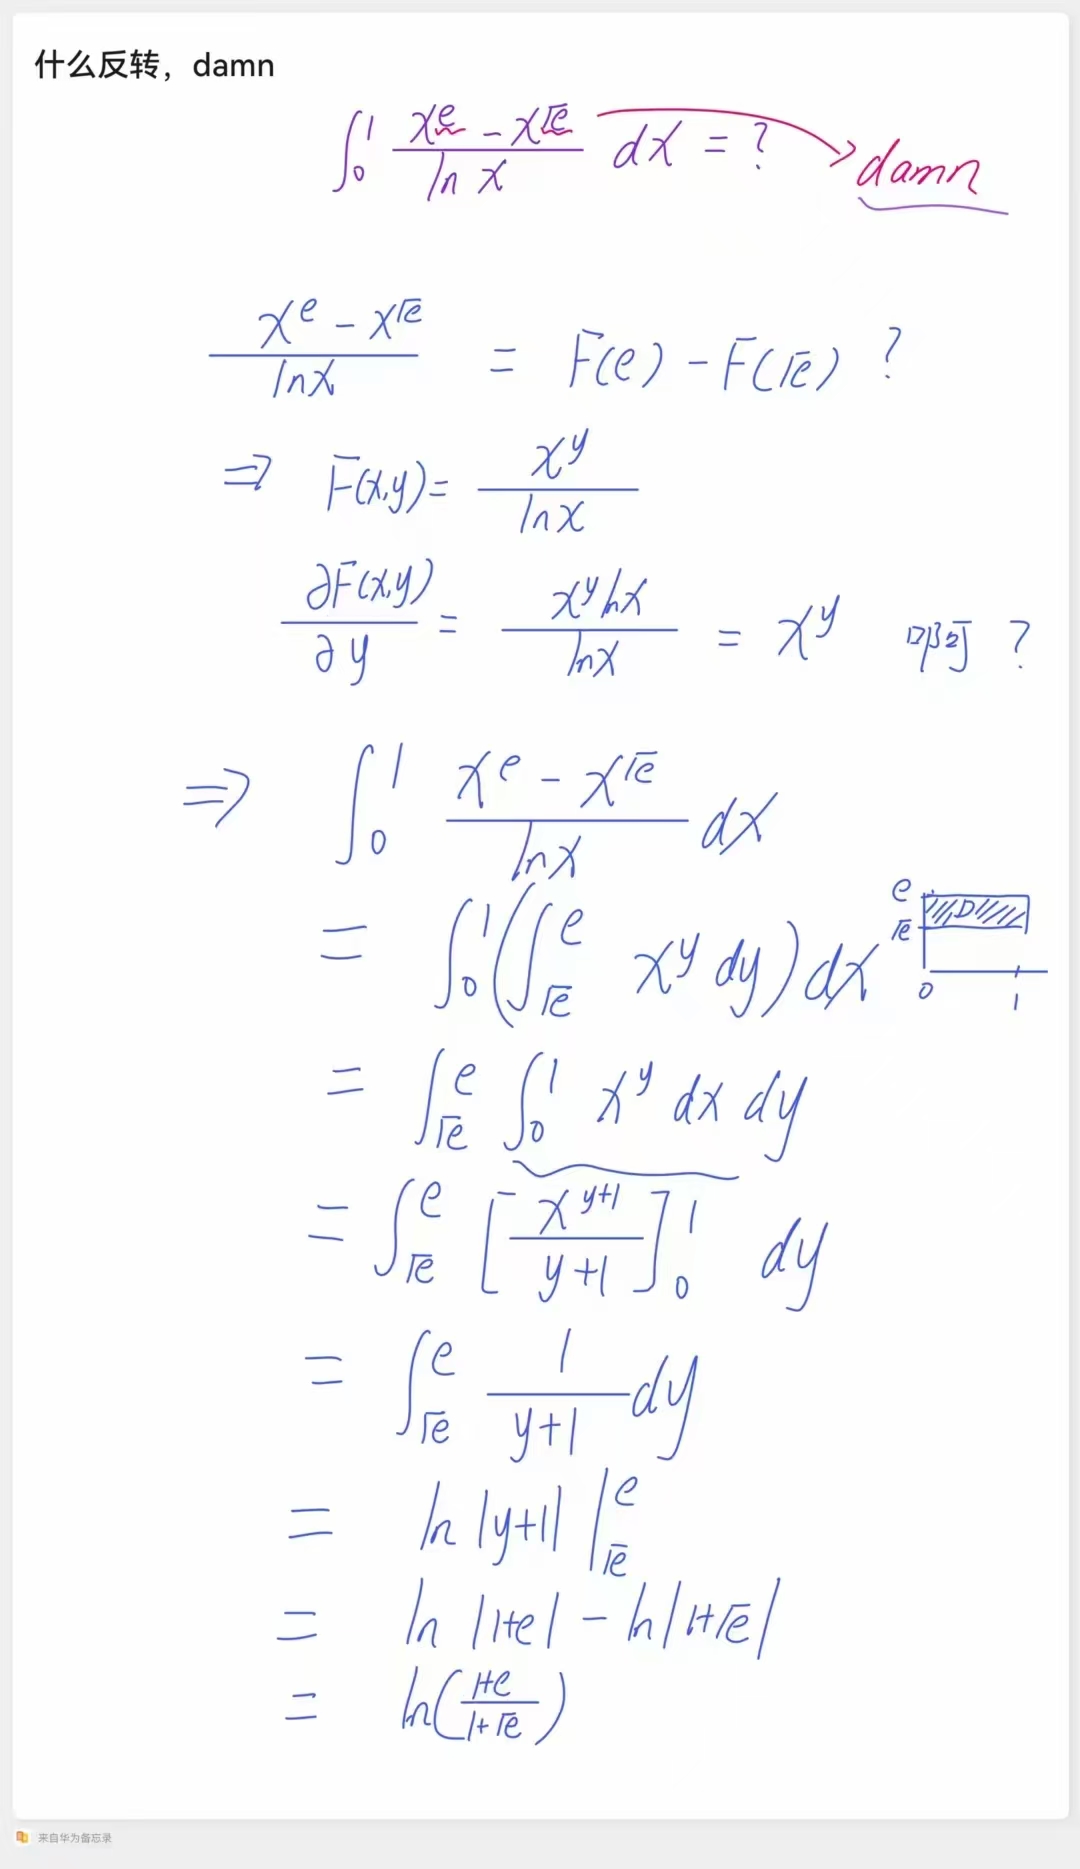 什么反转，damn
∫₀¹ (x^e - x^√e)/(ln x) dx = ? → damn
(x^e - x^√e)/(lnx) = F(e) - F(√e) ?
⇒ F(x,y) = x^y/(lnx)
∂F(x,y)/∂y = (x^y lnx)/(lnx) = x^y 啊 ?
⇒ ∫₀¹ (x^e - x^√e)/(lnx) dx
= ∫₀¹ (∫_√e^e x^y dy) dx
e
√e D
0 1
= ∫_√e^e ∫₀¹ x^y dx dy
= ∫_√e^e [x^(y+1)/(y+1)]₀¹ dy
= ∫_√e^e 1/(y+1) dy
= ln |y+1| |_√e^e
= ln |1+e| - ln |1+√e|
= ln((1+e)/(1+√e))
来自华为备忘录